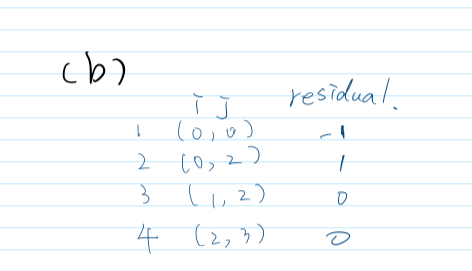 (b)
i j residual.
1 (0,0) -1
2 (0,2) 1
3 (1,2) 0
4 (2,3) 0